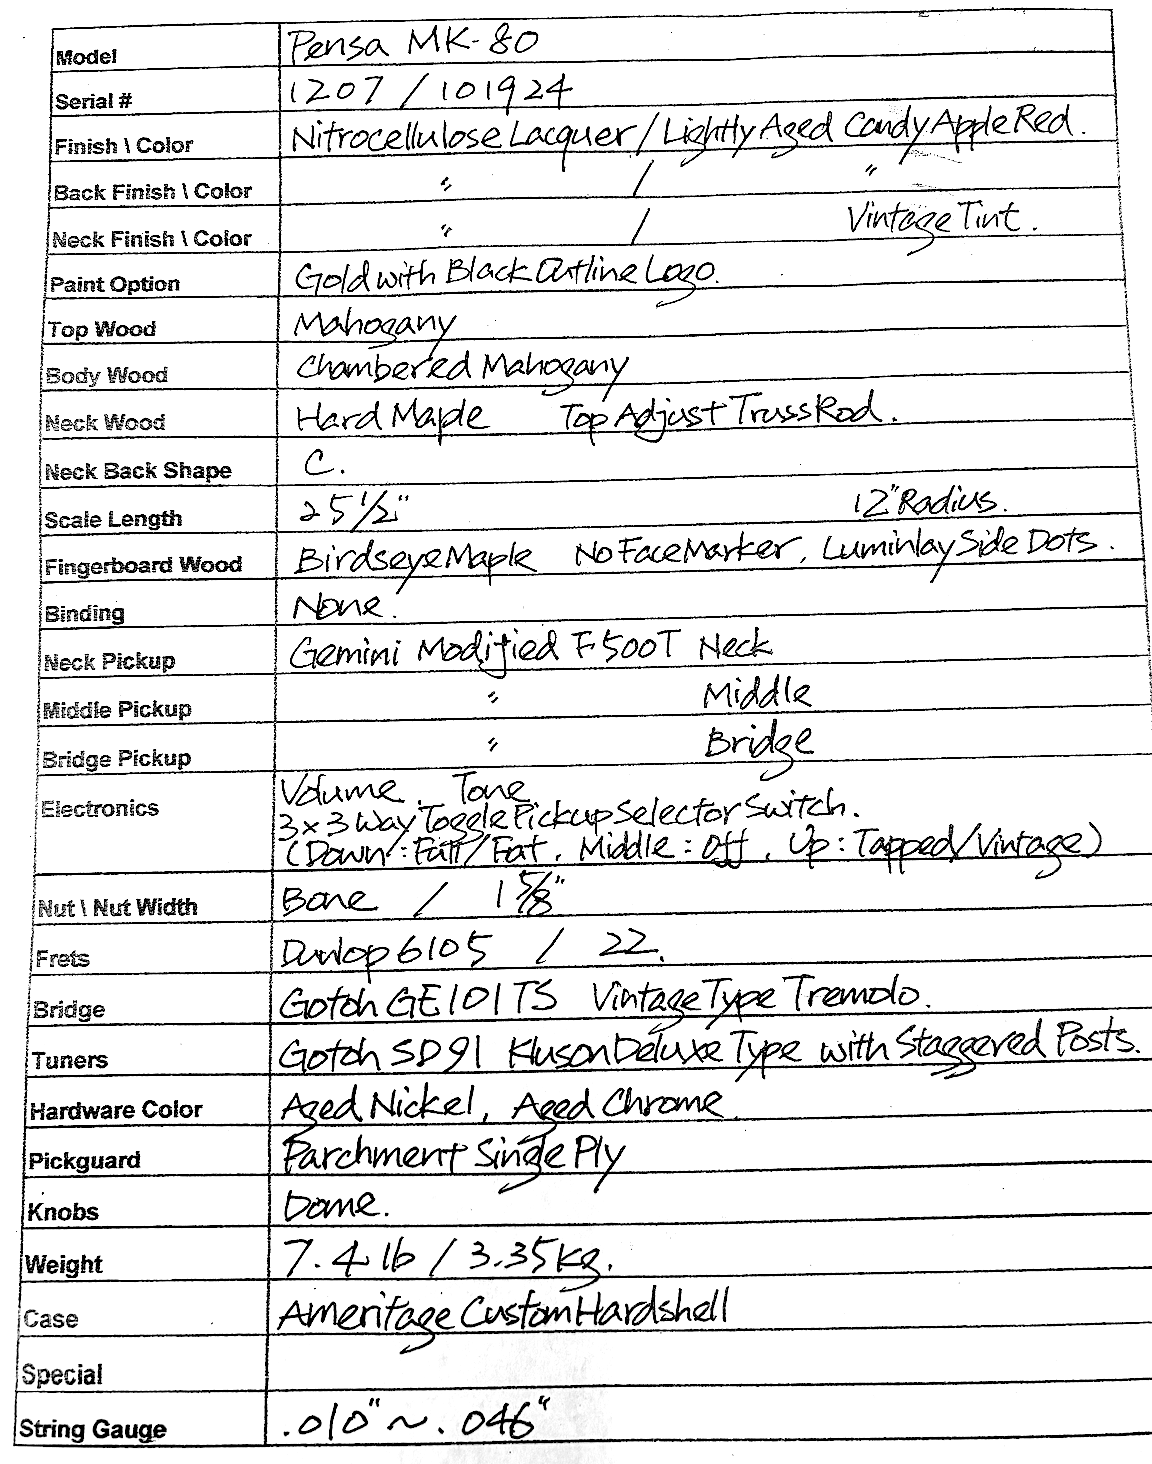 Model Pensa MK-80
Serial # 1207 / 101924
Finish \ Color Nitrocellulose Lacquer / Lightly Aged Candy Apple Red.
Back Finish \ Color " / "
Neck Finish \ Color " / Vintage Tint.
Paint Option Gold with Black Outline Logo.
Top Wood Mahogany
Body Wood Chambered Mahogany
Neck Wood Hard Maple Top Adjust Truss Rod.
Neck Back Shape C.
Scale Length 25 1/2" 12" Radius.
Fingerboard Wood Birdseye Maple No Face Marker, Luminlay Side Dots.
Binding None.
Neck Pickup Gemini Modified F-500T Neck
Middle Pickup " Middle
Bridge Pickup " Bridge
Electronics Volume, Tone
3x3 Way Toggle Pickup Selector Switch.
(Down: Full/Fat, Middle: Off, Up: Tapped/Vintage)
Nut \ Nut Width Bone / 1 5/8"
Frets Dunlop 6105 / 22.
Bridge Gotoh GE101TS Vintage Type Tremolo.
Tuners Gotoh SD91 Kluson Deluxe Type with Staggered Posts.
Hardware Color Aged Nickel, Aged Chrome
Pickguard Parchment Single Ply
Knobs Dome.
Weight 7.4 lb / 3.35kg.
Case Ameritage Custom Hardshell
Special
String Gauge .010" ~ .046"